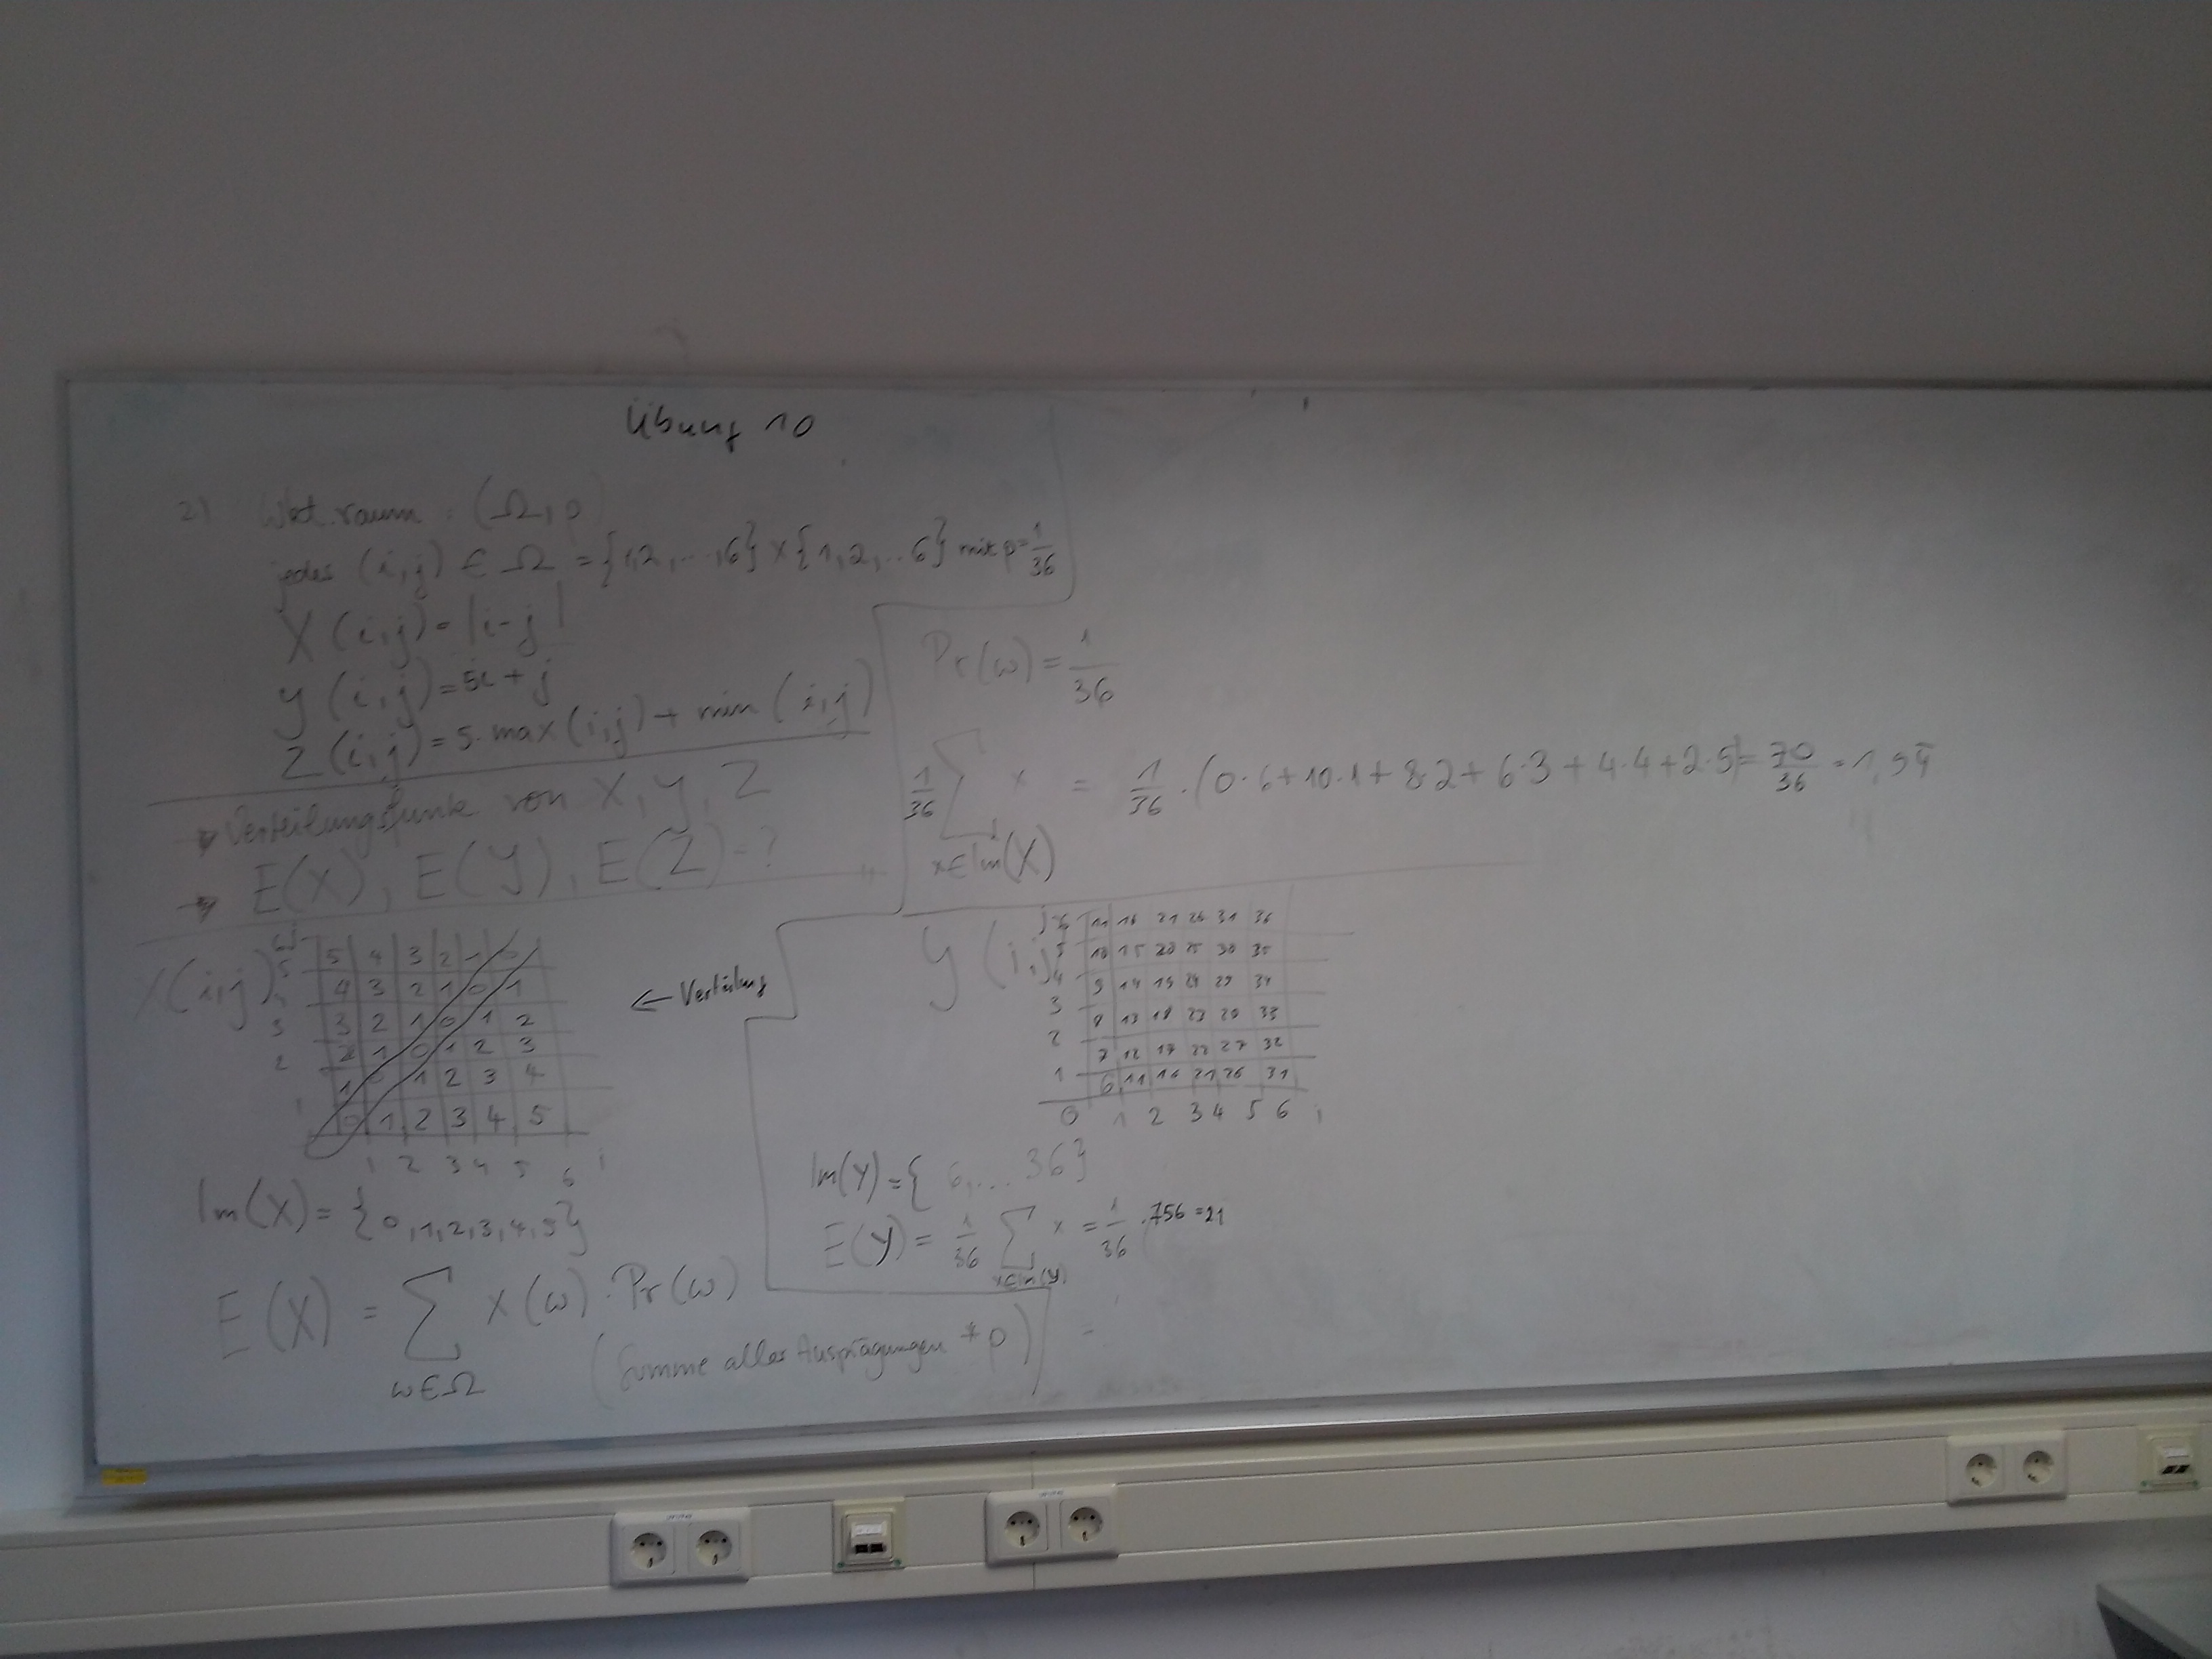 Übung 10
2) Wkt.raum : (Ω, p)
jedes (i,j) ∈ Ω = {1,2,...,6} x {1,2,...6} mit p=1/36
X(i,j) = |i-j|
Y(i,j) = 5i + j
Z(i,j) = 5·max(i,j) + min(i,j)
→ Verteilungsfunkt von X, Y, Z
→ E(X), E(Y), E(Z) = ?
X(i,j)
6 5 4 3 2 1 0
5 4 3 2 1 0 1
4 3 2 1 0 1 2
3 2 1 0 1 2 3
2 1 0 1 2 3 4
1 0 1 2 3 4 5
1 2 3 4 5 6 i
← Verteilung
Im(X) = {0,1,2,3,4,5}
E(X) = ∑ X(ω) · Pr(ω)
ω∈Ω
(Summe aller Ausprägungen * p)
Pr(ω) = 1/36
1/36 ∑ x = 1/36 · (0·6+10·1+8·2+6·3+4·4+2·5) = 70/36 = 1,94̅
x∈Im(X)
Y(i,j)
j 6 11 16 21 26 31 36
5 10 15 20 25 30 35
4 9 14 19 24 29 34
3 8 13 18 23 28 33
2 7 12 17 22 27 32
1 6 11 16 21 26 31
0 1 2 3 4 5 6 i
Im(Y) = {6,...36}
E(Y) = 1/36 ∑ x = 1/36 · 756 = 21
x∈Im(Y)